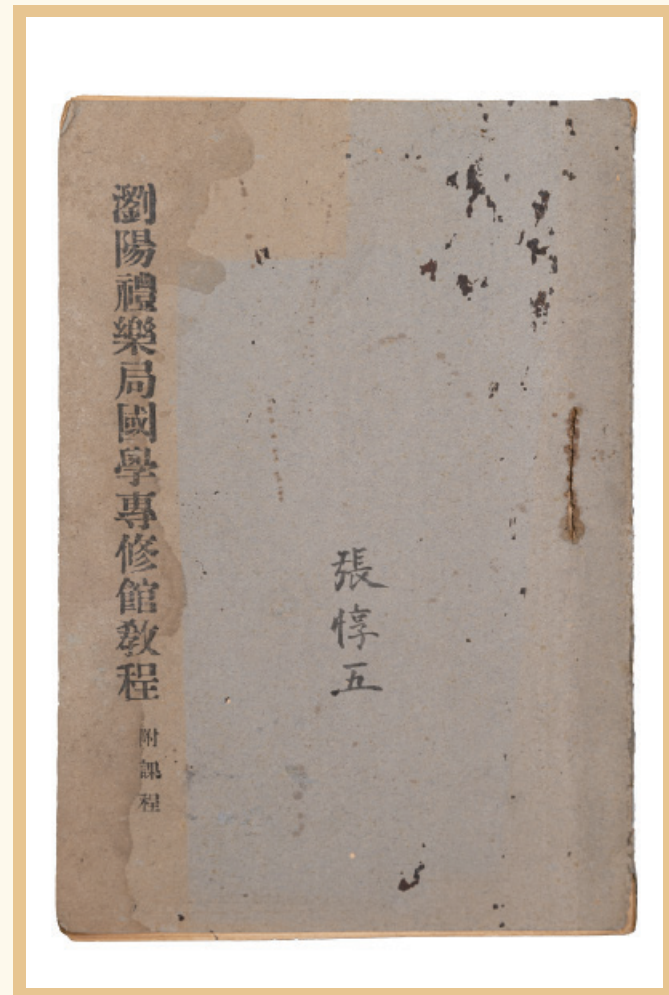 瀏陽禮樂局國學專修館教程
附課程
張惇五